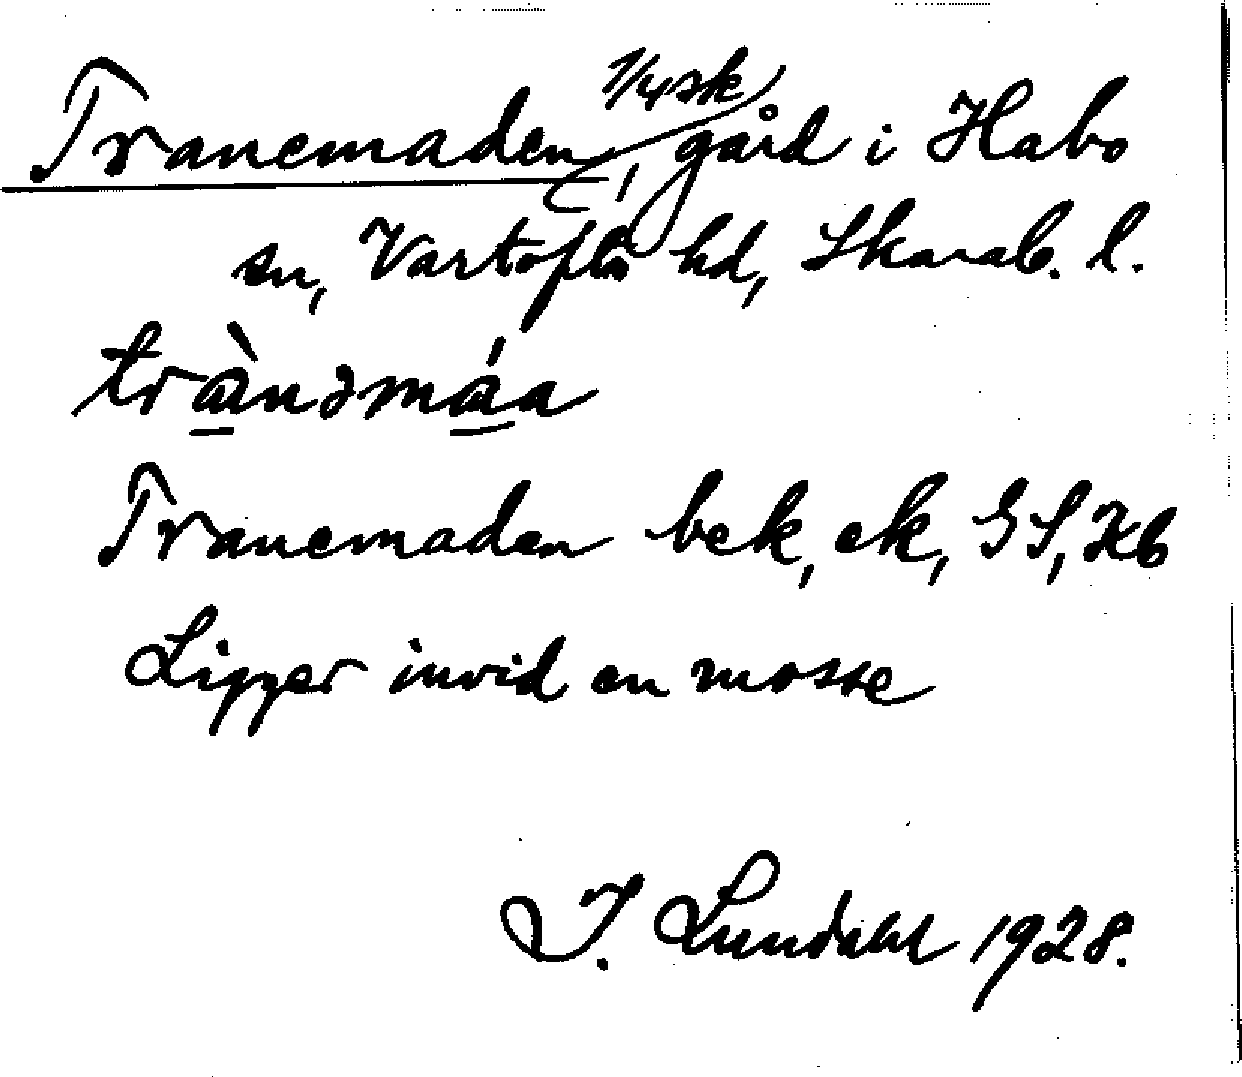 Tranemaden, 1/4 sk gård i Habo
sn, Vartofta hd, Skarab. l.
trànəmáa
Tranemaden bek, ek, GS, Kb
Ligger invid en mosse
I. Lundahl 1928.